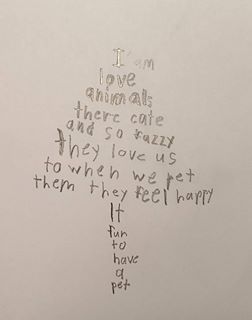 I am
love
animals
there cate
and so fuzzy
they love us
to when we pet
them they feel happy
It
fun
to
have
a
pet